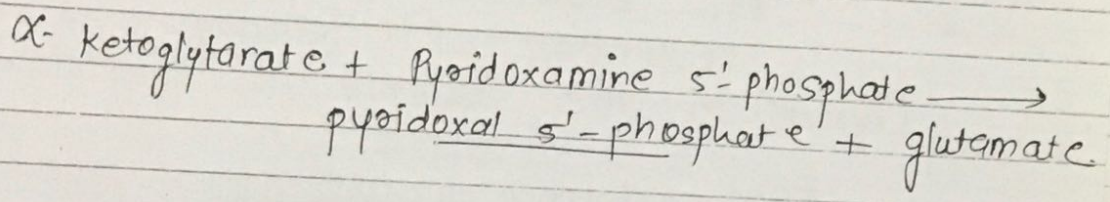 α- ketoglytarate + Pyridoxamine 5'-phosphate ⟶
pyridoxal 5'-phosphate + glutamate.